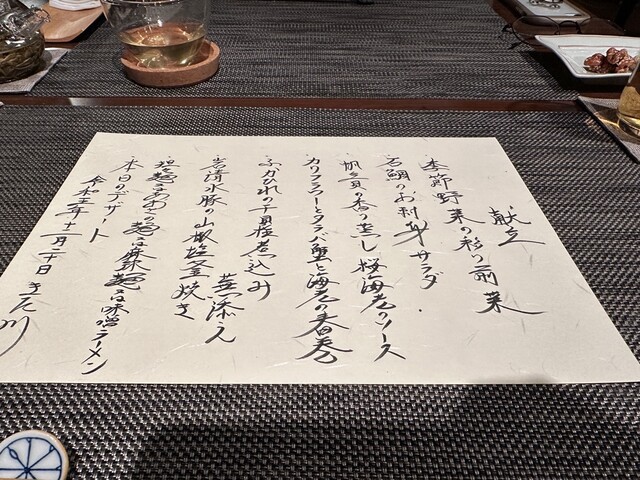 献立
季節野菜の彩り前菜
石鯛のお刺身サラダ
帆立貝の香り蒸し 桜海老のソース
カリフラワーとタラバ蟹と海老の春巻
ふかひれの干貝柱煮込み
岩清水豚の山椒塩釜焼き 葉添え
麺
又は麻麺又は味噌ラーメン
本日のデザート
令和五年十一月二十日